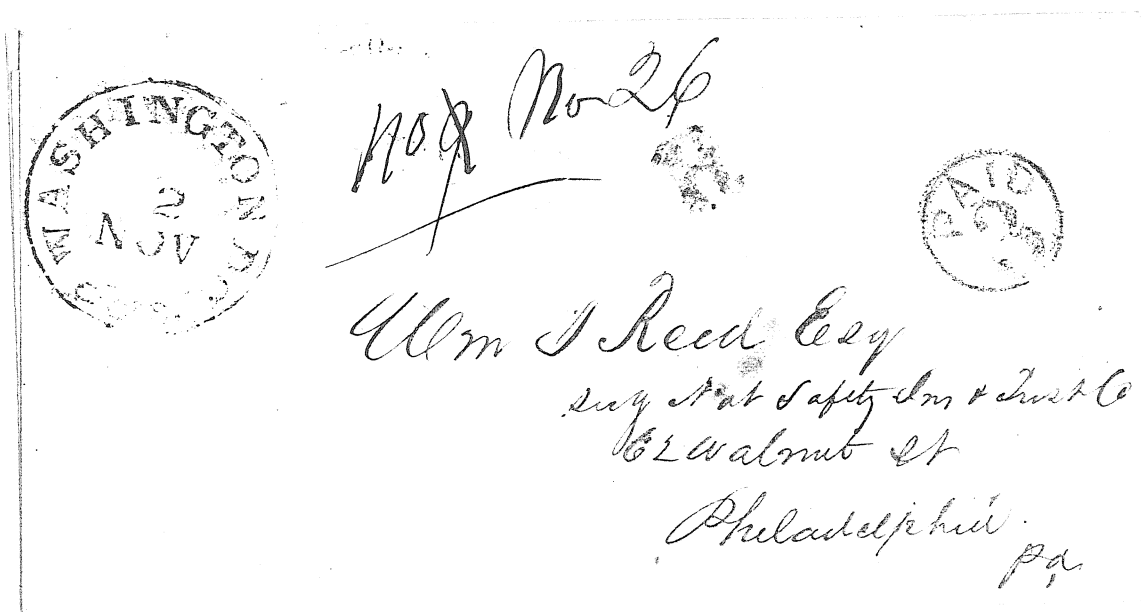 WASHINGTON D.C.
2
NOV
No 26
PAID
Wm J Reed Esq
Secy Nat Safety Ins & Trust Co
62 Walnut St
Philadelphia
Pa.